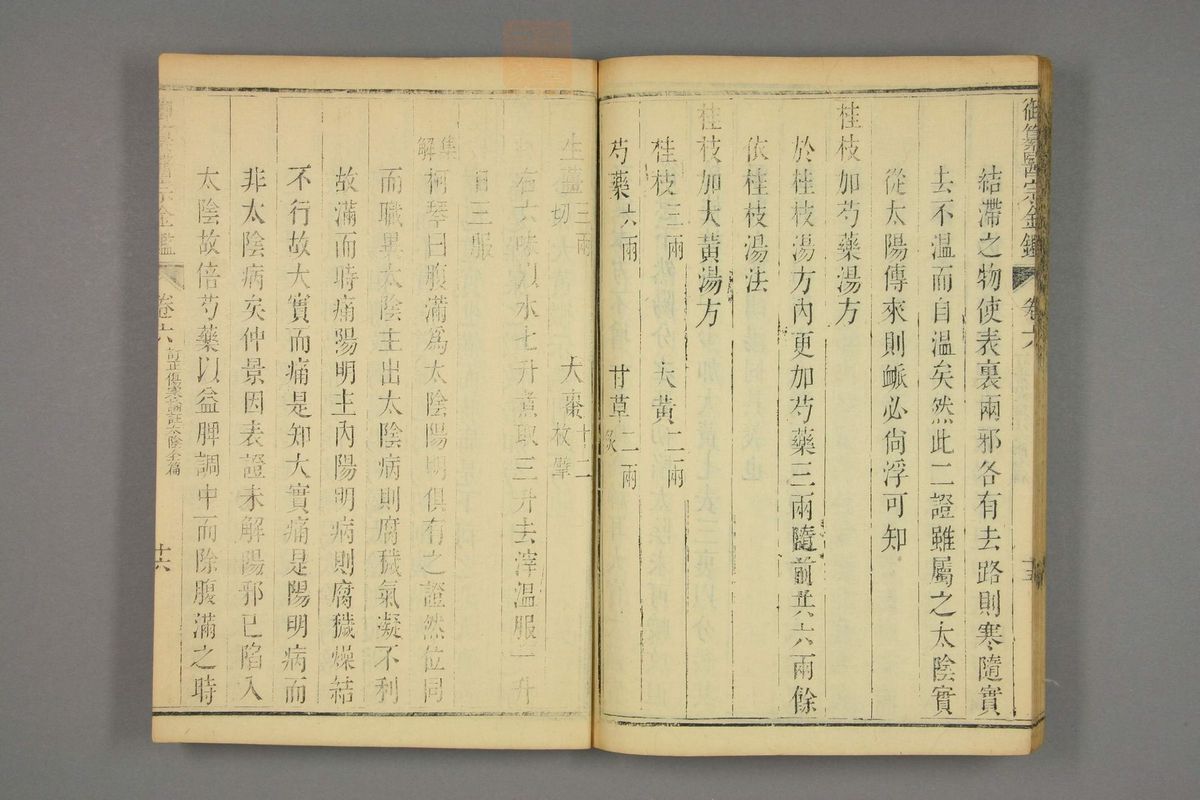 御纂醫宗金鑑 卷六 十五
結滯之物使表裏兩邪各有去路則寒隨實
去不溫而自溫矣然此二證雖屬之太陰實
從太陽傳來則脈必尚浮可知
桂枝加芍藥湯方
於桂枝湯方內更加芍藥三兩隨前共六兩餘
依桂枝湯法
桂枝加大黃湯方
桂枝三兩 大黃二兩
芍藥六兩 甘草二兩炙
生薑三兩切 大棗十二枚擘
右六味以水七升煮取三升去滓溫服一升
日三服
集解 柯琴曰腹滿為太陰陽明俱有之證然位同
而職異太陰主出太陰病則腐穢氣凝不利
故滿而時痛陽明主內陽明病則腐穢燥結
不行故大實而痛是知大實痛是陽明病而
非太陰病矣仲景因表證未解陽邪已陷入
太陰故倍芍藥以益脾調中而除腹滿之時
御纂醫宗金鑑 卷六 訂正傷寒論註太陰全篇 十六